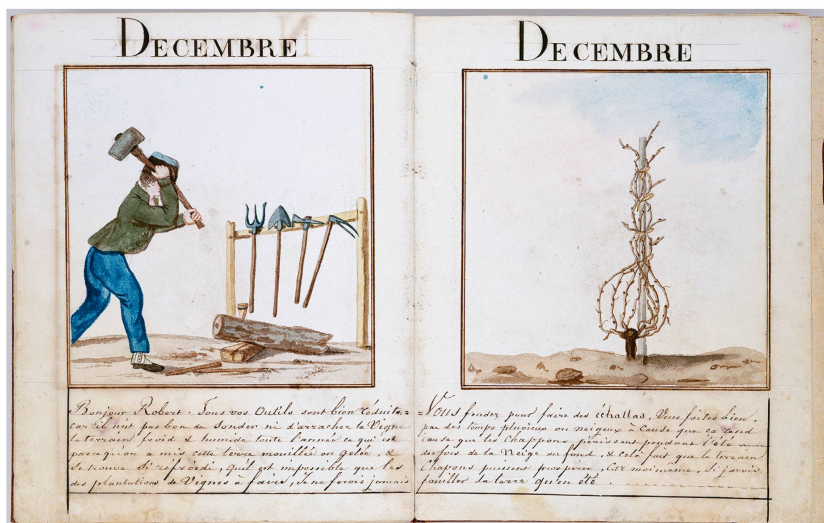 DECEMBRE
Bonjour Robert. Tous vos Outils sont bien
car il n'est pas bon de sonder ni d'arracher la Vigne
le terrain froid & humide toute l'année ce qui est
parcequ'on a mis cette terre mouillée ou gelée, &
se trouve si refroidi, qu'il est impossible que les
des plantations de Vignes à faire, je ne ferois jamais
DECEMBRE
Vous fendez pour faire des échallas, Vous faites bien,
par des temps pluvieux ou neigeux = Cause que ce rend
cause que les Chappons périssent pendant l'été
des fois de la Neige au fond, & cela fait que le terrain
chapons puissent prosperer, Car moi même, si j'avois
fouiller la terre qu'en été.